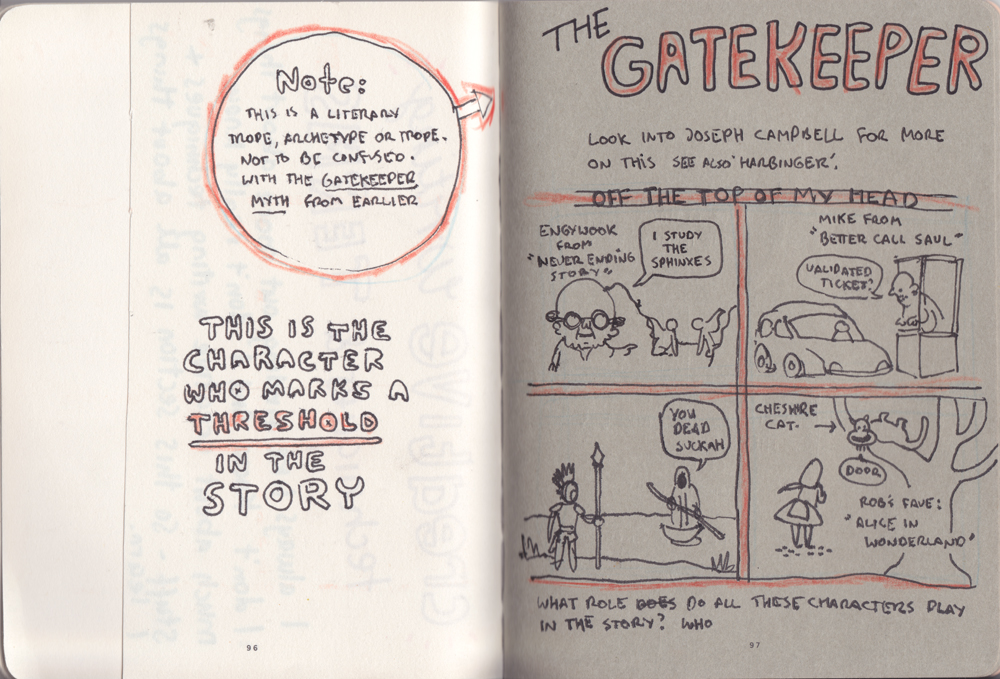 Note:
THIS IS A LITERARY
TROPE, ARCHETYPE OR TROPE.
NOT TO BE CONFUSED.
WITH THE GATEKEEPER
MYTH FROM EARLIER
THIS IS THE
CHARACTER
WHO MARKS A
THRESHOLD
IN THE
STORY
96
THE
GATEKEEPER
LOOK INTO JOSEPH CAMPBELL FOR MORE
ON THIS SEE ALSO 'HARBINGER'.
OFF THE TOP OF MY HEAD
ENGYWOOK
FROM
"NEVER ENDING
STORY"
I STUDY
THE
SPHINXES
MIKE FROM
"BETTER CALL SAUL"
VALIDATED
TICKET?
YOU
DEAD
SUCKAH
CHESHIRE
CAT.
DOOR
ROB'S FAVE:
"ALICE IN
WONDERLAND"
WHAT ROLE DOES DO ALL THESE CHARACTERS PLAY
IN THE STORY? WHO
97